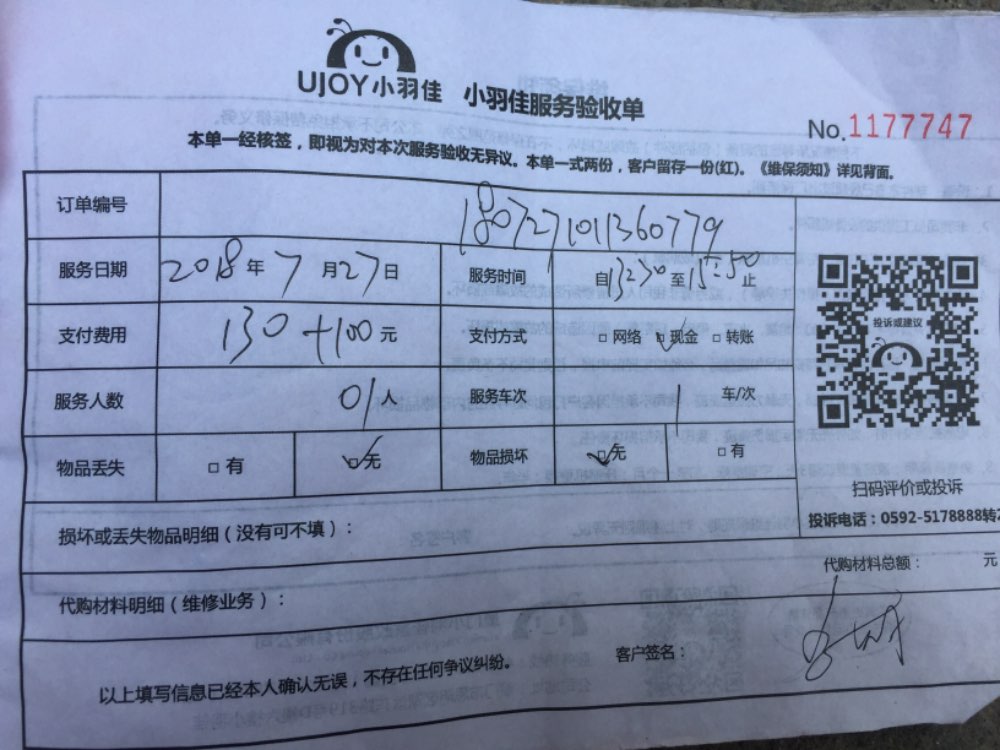 UJOY小羽佳 小羽佳服务验收单
No.1177747
本单一经核签，即视为对本次服务验收无异议。本单一式两份，客户留存一份(红)。《维保须知》详见背面。
订单编号 180727101360779
服务日期 2018年7月27日 服务时间 自13:30至15:50止
支付费用 130+100元 支付方式 □网络 ☑现金 □转账
服务人数 01人 服务车次 1 车/次
物品丢失 □有 ☑无 物品损坏 ☑无 □有
投诉或建议
扫码评价或投诉
投诉电话：0592-5178888转2
损坏或丢失物品明细（没有可不填）：
代购材料总额： 元
代购材料明细（维修业务）：
以上填写信息已经本人确认无误，不存在任何争议纠纷。
客户签名：